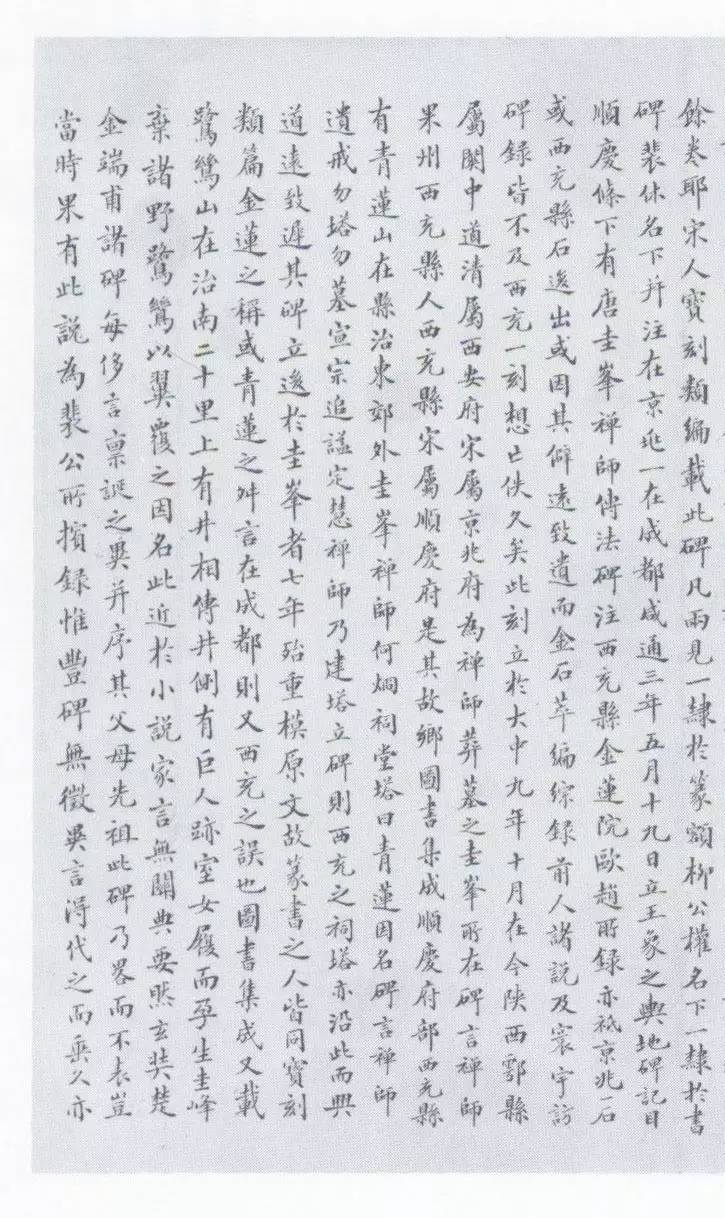 餘卷耶宋人寶刻類編載此碑凡兩見一隸於篆額柳公權名下一隸於書
碑裴休名下并注在京兆一在成都咸通三年五月十九日立王象之輿地碑記目
順慶條下有唐圭峯禪師傳法碑注西充縣金蓮院歐趙所錄亦祗京兆一石
或西充縣石後出或因其僻遠致遺而金石萃編綜錄前人諸說及寰宇訪
碑錄皆不及西充一刻想亡佚久矣此刻立於大中九年十月在今陝西鄠縣
屬關中道清屬西安府宋屬京兆府為禪師葬墓之圭峯所在碑言禪師
果州西充縣人西充縣宋屬順慶府是其故鄉圖書集成順慶府部西充縣
有青蓮山在縣治東郊外圭峯禪師何炯祠堂塔曰青蓮因名碑言禪師
遺戒勿塔勿墓宣宗追謚定慧禪師乃建塔立碑則西充之祠塔亦沿此而興
道遠致遲其碑立後於圭峯者七年殆重模原文故篆書之人皆同寶刻
類篇金蓮之稱或青蓮之舛言在成都則又西充之誤也圖書集成又載
鷺鷥山在治南二十里上有井相傳井側有巨人跡室女履而孕生圭峰
棄諸野鷺鷥以翼覆之因名此近於小說家言無關典要然玄奘楚
金端甫諸碑每侈言稟誕之異并序其父母先祖此碑乃畧而不表豈
當時果有此說為裴公所擯錄惟豐碑無徵異言得代之而乘久亦